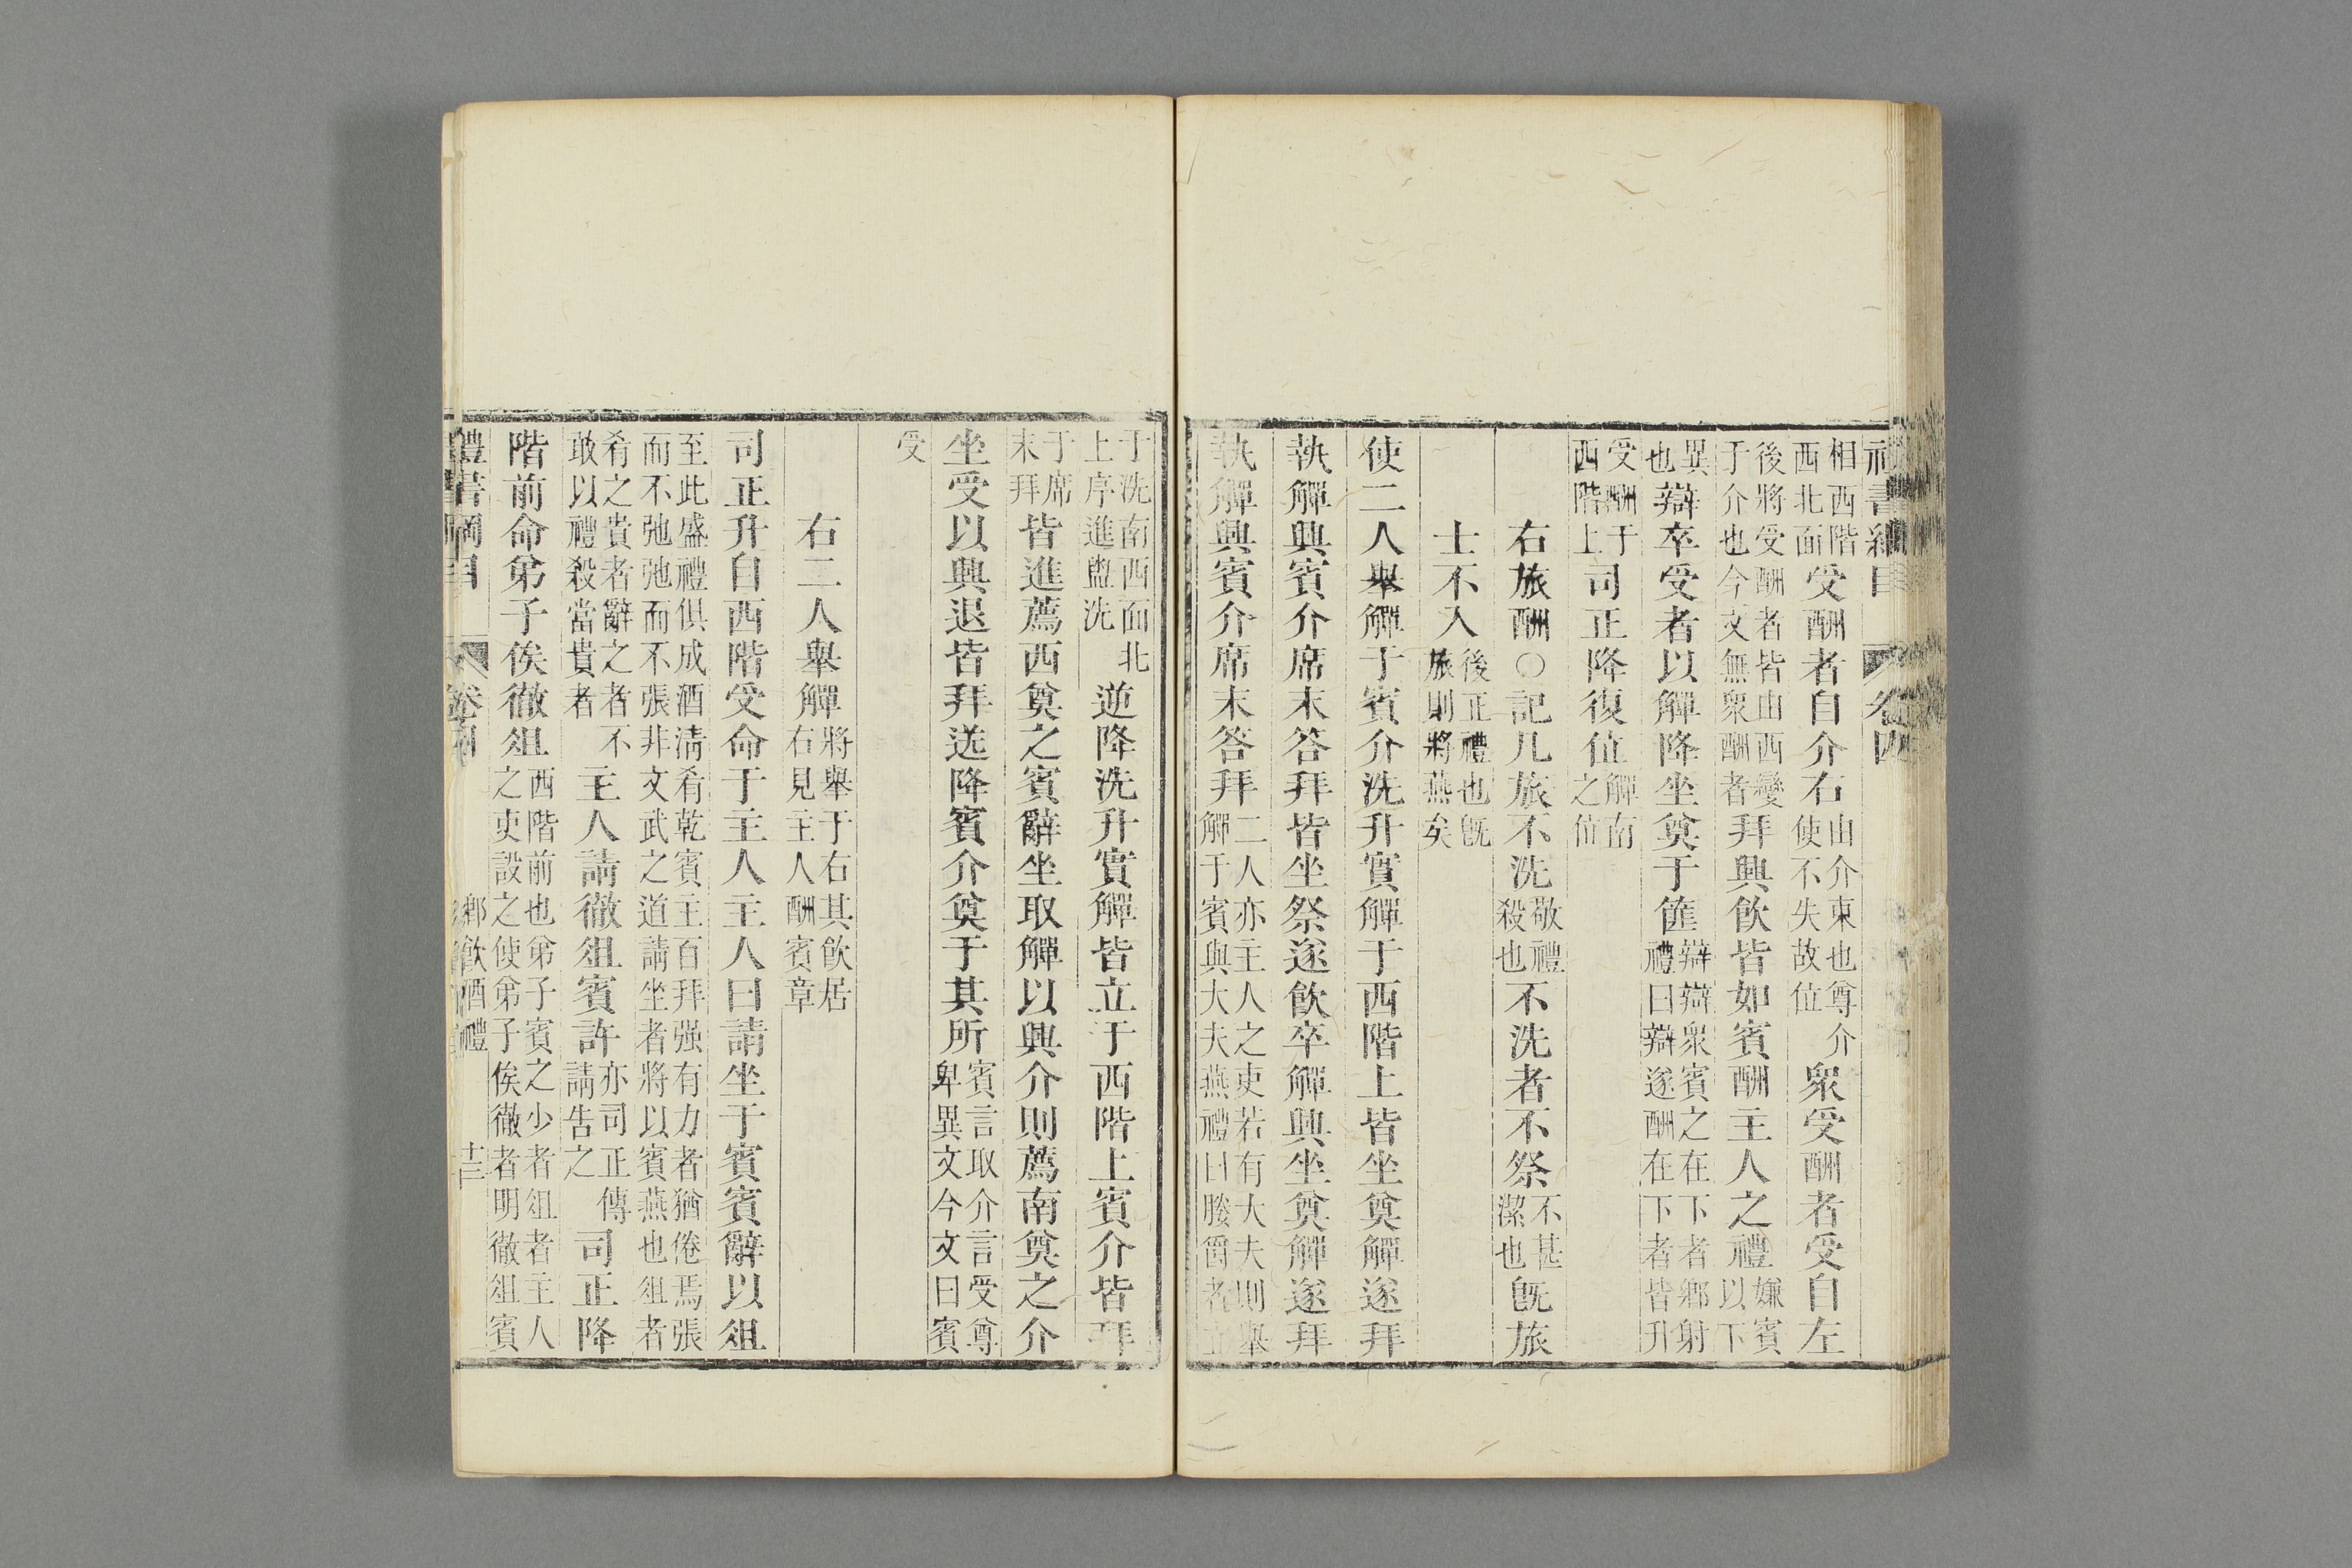 禮書綱目 卷四
相西階西北面受酬者自介右由介東也尊介使不失故位眾受酬者受自左
後將受酬者皆由西變于介也今文無眾酬者拜興飲皆如賓酬主人之禮嫌賓以下
異也辯卒受者以觶降坐奠于篚辯辯眾賓之在下者鄉射禮曰辯遂酬在下者皆升
受酬于西階上司正降復位觶南之位
右旅酬○記凡旅不洗敬禮殺也不洗者不祭不甚潔也既旅
士不入後正禮也既旅則將燕矣
使二人舉觶于賓介洗升實觶于西階上皆坐奠觶遂拜
執觶興賓介席末答拜皆坐祭遂飲卒觶興坐奠觶遂拜
執觶興賓介席末答拜二人亦主人之吏若有大夫則舉觶于賓與大夫燕禮曰媵爵者立
于洗南西面北上序進盥洗逆降洗升實觶皆立于西階上賓介皆拜
于席末拜皆進薦西奠之賓辭坐取觶以興介則薦南奠之介
坐受以興退皆拜送降賓介奠于其所賓言取介言受尊卑異文今文曰賓
受
右二人舉觶將舉于右其飲居右見主人酬賓章
司正升自西階受命于主人主人曰請坐于賓賓辭以俎
至此盛禮俱成酒清肴乾賓主百拜强有力者猶倦焉張而不弛弛而不張非文武之道請坐者將以賓燕也俎者
肴之貴者辭之者不敢以禮殺當貴者主人請徹俎賓許亦司正傳請告之司正降
階前命弟子俟徹俎西階前也弟子賓之少者俎者主人之吏設之使弟子俟徹者明徹俎賓
禮書綱目 卷四 鄉飲酒禮 十三